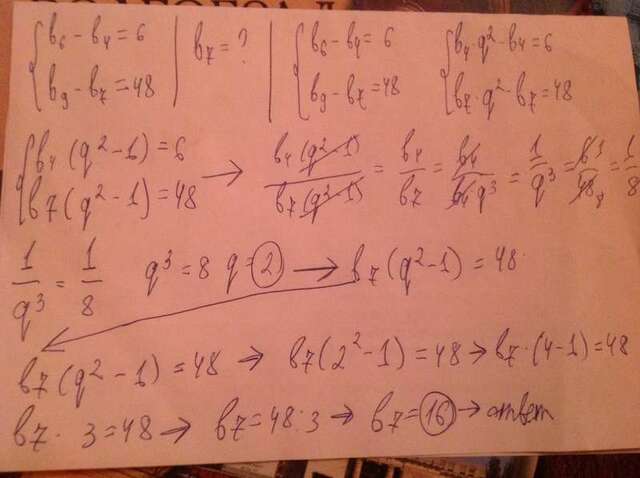 {b₆ - b₄ = 6 | b₇ = ? | {b₆ - b₄ = 6 {b₄·q² - b₄ = 6
{b₉ - b₇ = 48 | {b₉ - b₇ = 48 {b₇·q² - b₇ = 48
{b₄(q² - 1) = 6
{b₇(q² - 1) = 48 → b₄(q² - 1)/b₇(q² - 1) = b₄/b₇ = b₄/b₄q³ = 1/q³ = 6¹/48₈ = 1/8
1/q³ = 1/8 q³ = 8 q = 2 → b₇(q² - 1) = 48
b₇(q² - 1) = 48 → b₇(2² - 1) = 48 → b₇·(4 - 1) = 48
b₇ · 3 = 48 → b₇ = 48 : 3 → b₇ = 16 → ответ